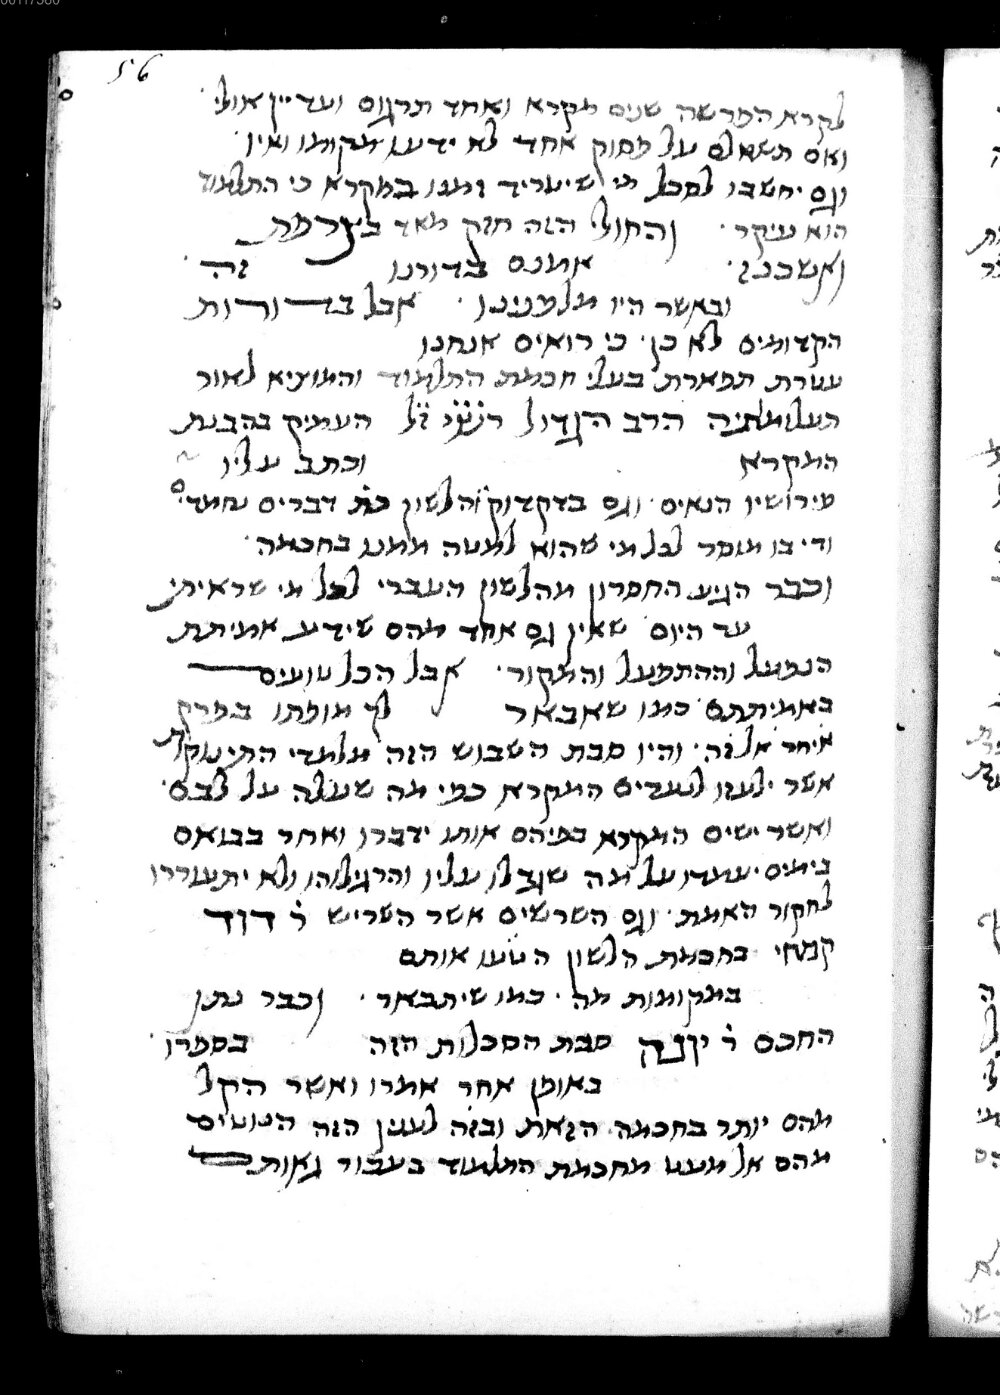 56
לקרא הפרשה שנים מקרא ואחד תרגום ועדיין אולי
ואם תשאלם על פסוק אחד לא ידעו מקומו ואיו
וגם יחשבו לסכל מי שיעריד זמנו במקרא כי התלמוד
הוא עיקר והחולי הזה חזק מאד בצרפת
ואשכנז אמנם בדורנו זה
ובאשר היו מלפנינו אבל בדורות
הקדומים לא כן כי רואים אנחנו
עטרת תפארת בעלי חכמת התלמוד והמוציא לאור
תעלומתיה הרב הגדול רש״י ז״ל העמיק בהבנת
המקרא וכתב עליו
פירושיו הנאים וגם בדקדוק והלשון כת׳ דברים נחמדי׳
ודי בו מוסר לכל מי שהוא למטה ממנו בחכמה
וכבר הגיע החסרון מהלשון העברי לכל מי שראיתי
עד היום שאין גם אחד מהם שידע אמיתת
הנפעל וההתפעל והמקור אבל הכל טועים
באמיתתם כמו שאבאר לך מופתו בפרק
אחר אל זה והיו סבת השבוש הזה מלמדי התינוקות
אשר ילעזו לנערים המקרא כפי מה שעלה על לבם
ואשר ישים המקרא בפיהם אותו ידברו ואחר בבואם
בימים יעמדו על מה שגדלו עליו והרגילוהו ולא יתעוררו
לחקור האמת וגם השרשים אשר השריש ר׳ דוד
קמחי בחכמת הלשון הטעו אותם
במקומות מה כמו שיתבאר וכבר נתן
החכם ר׳ יונה סבת הסכלות הזה בספרו
באופן אחר אמרו ואשר הקל
מהם יותר בחכמה הזאת ובזה לענין הזה הנוטים
מהם אל מעט מחכמת התלמוד בעבור גאות